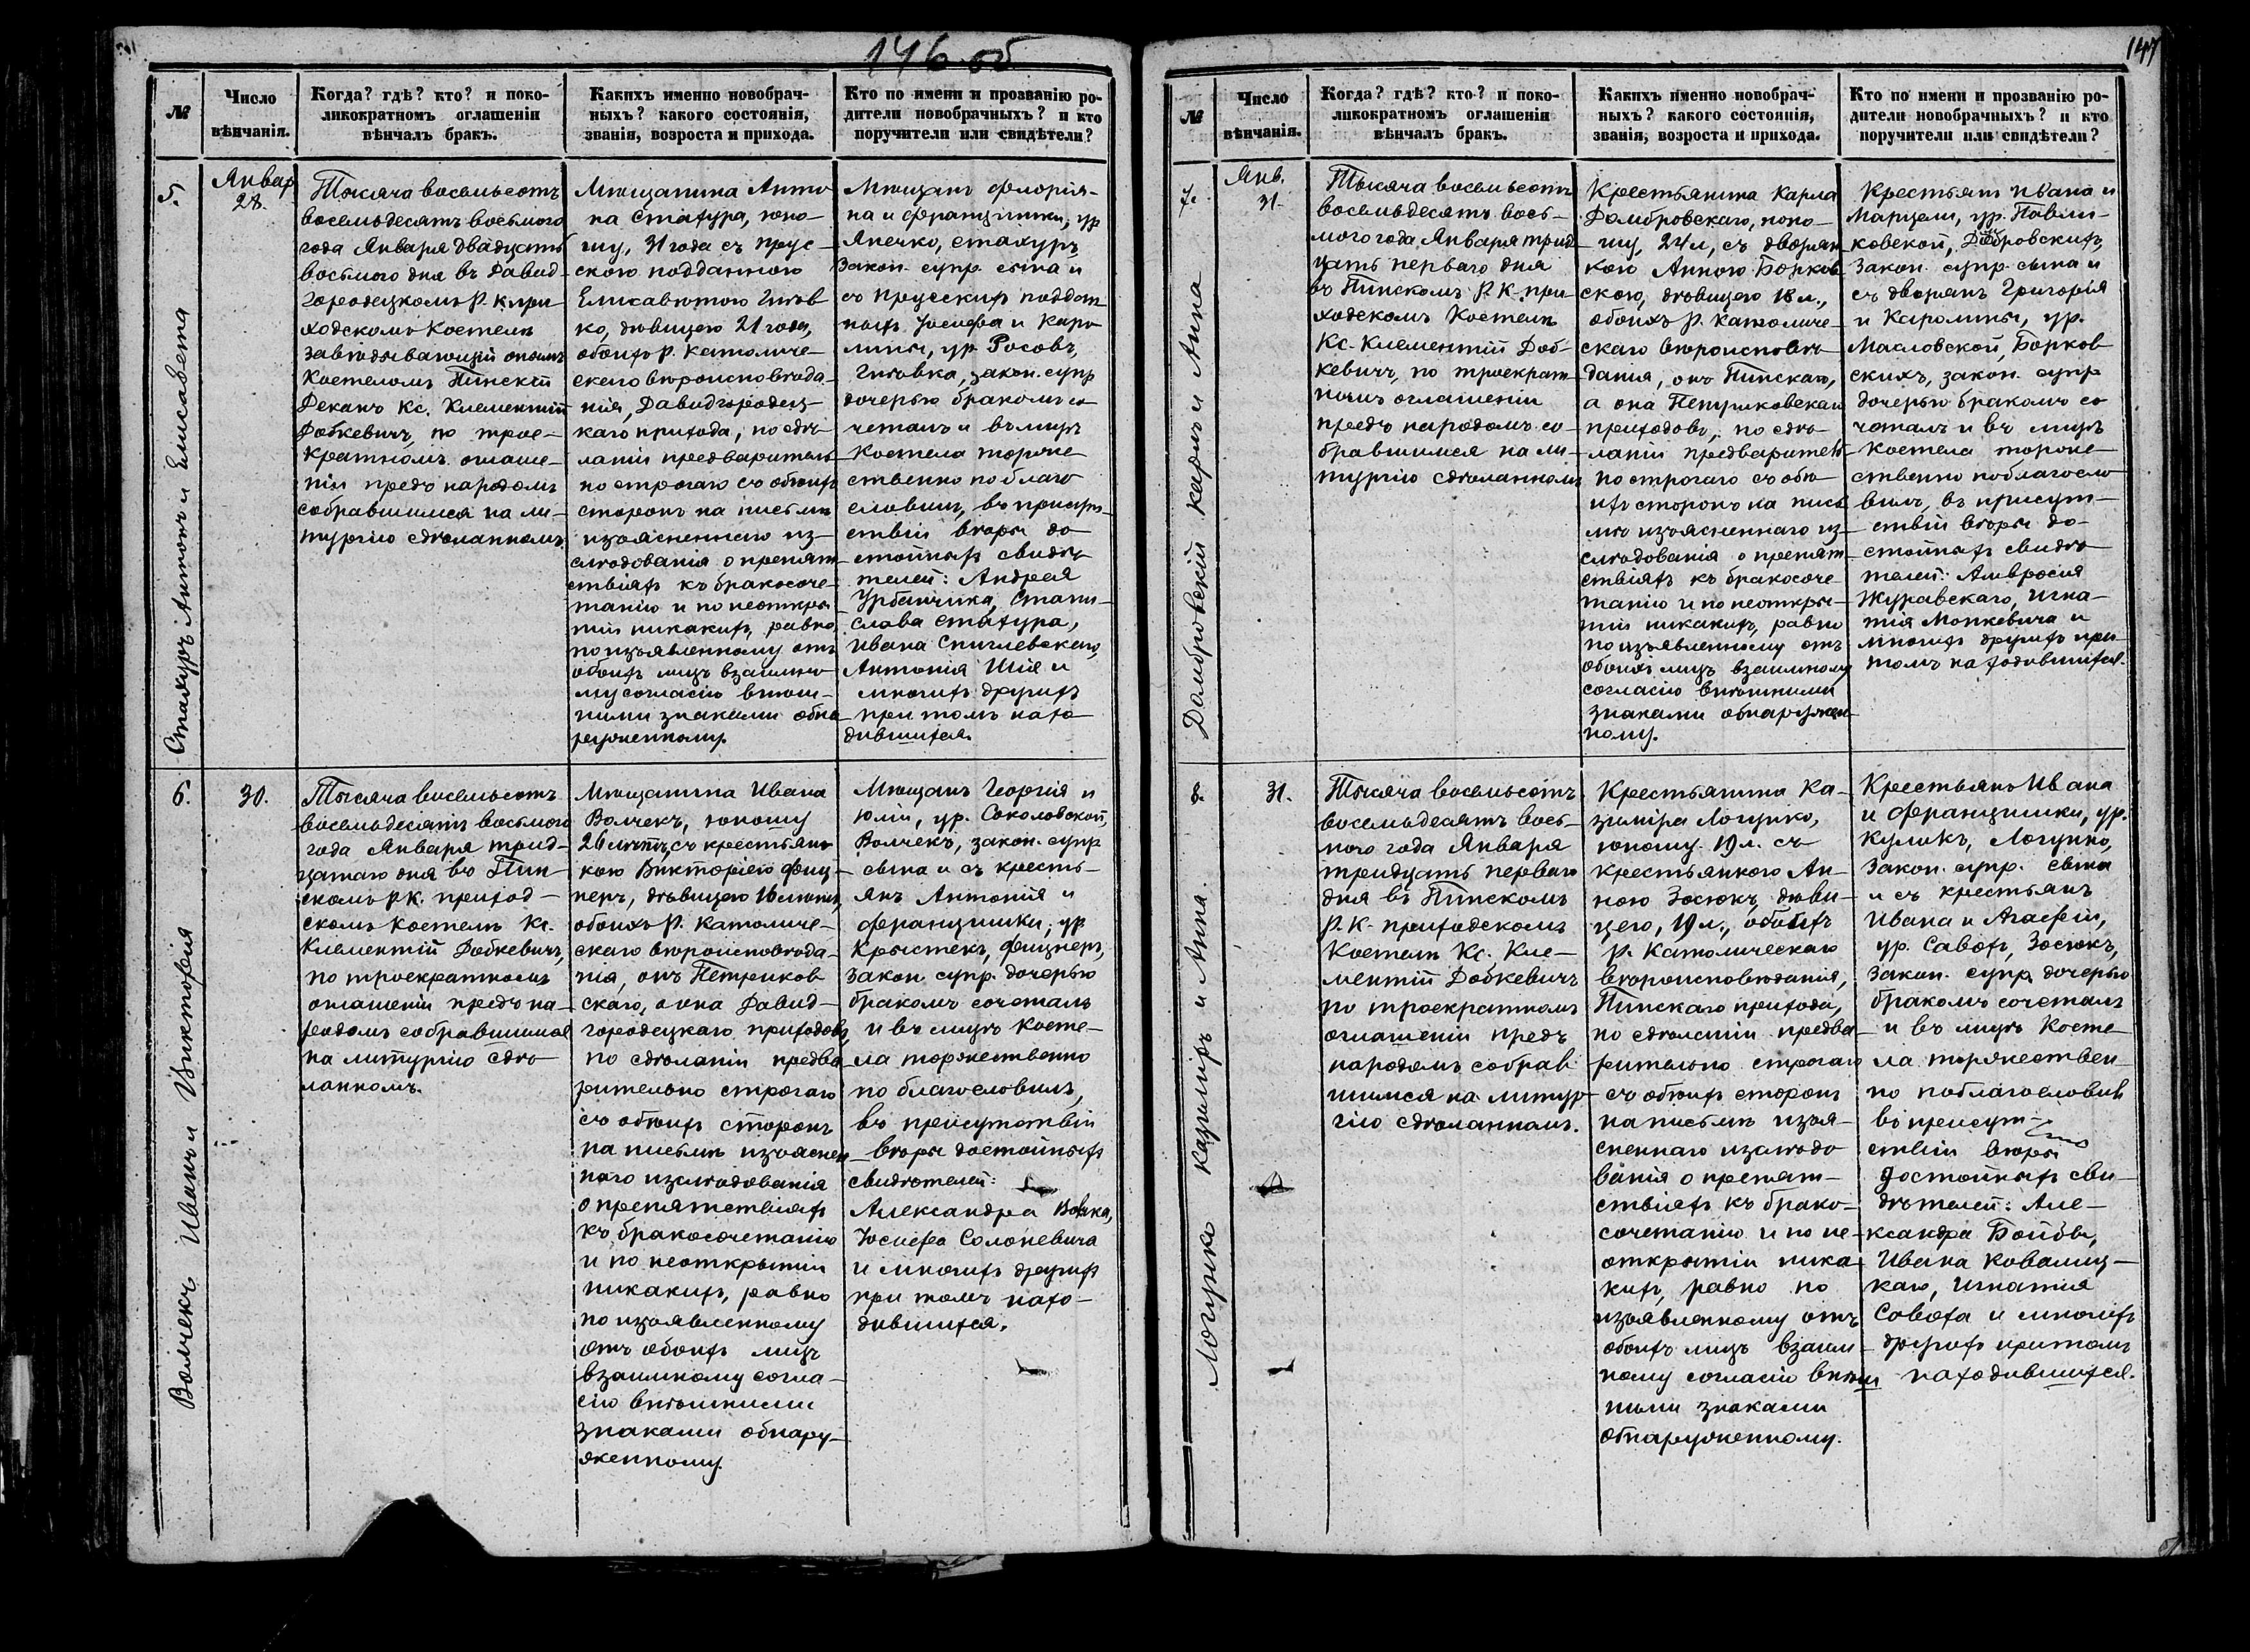 146 об
№
Число
вѣнчанія.
Когда? гдѣ? кто? и поко-
ликократномъ оглашеніи
вѣнчалъ бракъ.
Какихъ именно новобрач-
ныхъ? какого состоянія,
званія, возроста и прихода.
Кто по имени и прозванію ро-
дители новобрачныхъ? и кто
поручители или свидѣтели?
5.
Стахуръ Антонъ и Елисавета
Январ
28.
Тысяча восемьсотъ
восемьдесятъ восьмого
года Января двадцать
восьмого дня въ Давид-
Городецкомъ Р. К при-
ходскомъ Костелѣ
завѣдывающій онымъ
Костеломъ Пинскій
Деканъ Кс. Клементій
Добкевичъ, по трое-
кратномъ оглаше-
ніи предъ народомъ
собравшимся на ли-
тургію сдѣланномъ.
Мѣщанина Анто
на Стахура, юно-
шу, 31 года съ прус-
скою подданною
Елисаветою Гнѣв
ко, дѣвицею 21 года,
обоихъ Р. Католиче-
скаго вѣроисповѣда-
нія, Давидгородец-
каго прихода, по сдѣ-
ланіи предваритель
но строгаго съ обоихъ
сторонъ на письмѣ
изъясненнаго из-
слѣдованія о препят
ствіяхъ къ бракосоче-
танію и по неоткры
тіи никакихъ, равно
по изъявленному отъ
обоихъ лицъ взаимно-
му согласію внѣш-
ними знаками обна
руженному.
Мѣщанъ Флорія-
на и Францишки, ур
Янечко, Стахуръ,
Закон. супр. сына и
съ Прусскихъ поддан
ныхъ Іосифа и Каро
лины, ур. Росовъ,
Гнѣвко, закон. супр
дочерью бракомъ со-
четалъ и въ лицѣ
Костела торже
ственно поблаго
словилъ, въ присут-
ствіи вѣры до
стойныхъ свидѣ-
телей: Андрея
Урбанчика, Стани-
слава Стахура,
Ивана Спиглевскаго,
Антонія Шія и
многихъ другихъ
при томъ нахо
дившихся.
6.
Волчекъ Иванъ и Викторія
30.
Тысяча восемьсотъ
восемьдесятъ восьмого
года Января трид-
цатаго дня въ Пин-
скомъ Р К. приход-
скомъ Костелѣ Кс.
Клементій Добкевичъ,
по троекратномъ
оглашеніи предъ на-
родомъ собравшимся
на литургію сдѣ-
ланномъ.
Мѣщанина Ивана
Волчекъ, юношу
26 лѣтъ, съ крестьян
кою Викторіею Фиц-
неръ, дѣвицею 16 лѣтъ,
обоихъ Р. Католиче-
скаго вѣроисповѣда-
нія, онъ Петриков
скаго, а она Давид-
городецкаго приходовъ,
по сдѣланіи предва
рительно строгаго
съ обоихъ сторонъ
на письмѣ изъяснен
наго изслѣдованія
о препятствіяхъ
къ бракосочетанію
и по неоткрытіи
никакихъ, равно
по изъявленному
отъ обоихъ лицъ
взаимному согла-
сію внѣшними
знаками обнару-
женному.
Мѣщанъ Георгія и
Юліи, ур. Соколовской,
Волчекъ, закон. супр
сына и съ кресть-
янъ Антонія и
Францишки, ур
Крыстекъ, Фицнеръ,
закон. супр. дочерью
бракомъ сочеталъ
и въ лицѣ Косте-
ла торжественно
по благословилъ,
въ присутствіи
вѣры достойныхъ
свидѣтелей:
Александра
Іосифа Солоневича
и многихъ другихъ
при томъ нахо-
дившихся.
147
№
Число
вѣнчанія.
Когда? гдѣ? кто? и поко-
ликократномъ оглашеніи
вѣнчалъ бракъ.
Какихъ именно новобрач-
ныхъ? какого состоянія,
званія, возроста и прихода.
Кто по имени и прозванію ро-
дители новобрачныхъ? и кто
поручители или свидѣтели?
7.
Домбровскій Карлъ и Анна
Янв.
31.
Тысяча восемьсотъ
восемьдесятъ вось-
мого года Января трид
цать перваго дня
въ Пинскомъ Р. К. при
ходскомъ Костелѣ
Кс. Клементій Доб-
кевичъ, по троекрат-
номъ оглашеніи
предъ народомъ со-
бравшимся на ли-
тургію сдѣланномъ
Крестьянина Карла
Домбровскаго, юно-
шу, 24 л, съ дворян
кою Анною Борков
скою, дѣвицею 18 л.,
обоихъ Р. Католиче-
скаго вѣроисповѣ-
данія, онъ Пинскаго,
а она Петриковскаго
приходовъ, по сдѣ-
ланіи предваритель-
но строгаго съ обо-
ихъ сторонъ на пись
мѣ изъясненнаго из-
слѣдованія о препят-
ствіяхъ къ бракосоче
танію и по неоткры-
тіи никакихъ, равно
по изъявленному отъ
обоихъ лицъ взаимному
согласію внѣшними
знаками обнаружен-
ному.
Крестьянъ Ивана и
Марцели, ур. Павли-
ковской, Домбровскихъ,
Закон. супр. сына и
съ дворянъ Григорія
и Каролины, ур.
Масловской, Борков
скихъ, закон. супр
дочерью бракомъ со
четалъ и въ лицѣ
Костела торже-
ственно поблагосло
вилъ, въ присут-
ствіи вѣры до-
стойныхъ свидѣ
телей: Амвросія
Журавскаго, Игна-
тія Монкевича и
многихъ другихъ при
томъ находившихся.
8.
Логушко Казиміръ и Анна.
31.
Тысяча восемьсотъ
восемьдесятъ вось-
мого года Января
тридцать перваго
дня въ Пинскомъ
Р. К. приходскомъ
Костелѣ Кс. Кле-
ментій Добкевичъ
по троекратномъ
оглашеніи предъ
народомъ собрав
шимся на литур-
гію сдѣланномъ.
Крестьянина Ка-
зиміра Логушко,
юношу 19 л. съ
крестьянкою Ан-
ною Зосюкъ, дѣви-
цею, 19 л., обоихъ
Р. Католическаго
вѣроисповѣданія,
Пинскаго прихода,
по сдѣланіи предва
рительно строгаго
съ обоихъ сторонъ
на письмѣ изъя-
сненнаго изслѣдо
ванія о препят-
ствіяхъ къ брако-
сочетанію и по не-
открытіи ника
кихъ, равно по
изъявленному отъ
обоихъ лицъ взаим-
ному согласію внѣш
ними знаками
обнаруженному.
Крестьянъ Ивана
и Францишки, ур.
Куликъ, Логушко,
Закон. супр. сына
и съ крестьянъ
Ивана и Агафіи,
ур. Савохъ, Зосюкъ,
Закон. супр дочерью
бракомъ сочеталъ
и въ лицѣ Косте
ла торжествен-
но поблагословилъ
въ присут-
ствіи вѣры
достойныхъ сви-
дѣтелей: Але-
ксандра Бойбы,
Ивана Ковалиц-
каго, Игнатія
Савоха и многихъ
другихъ притомъ
находившихся.